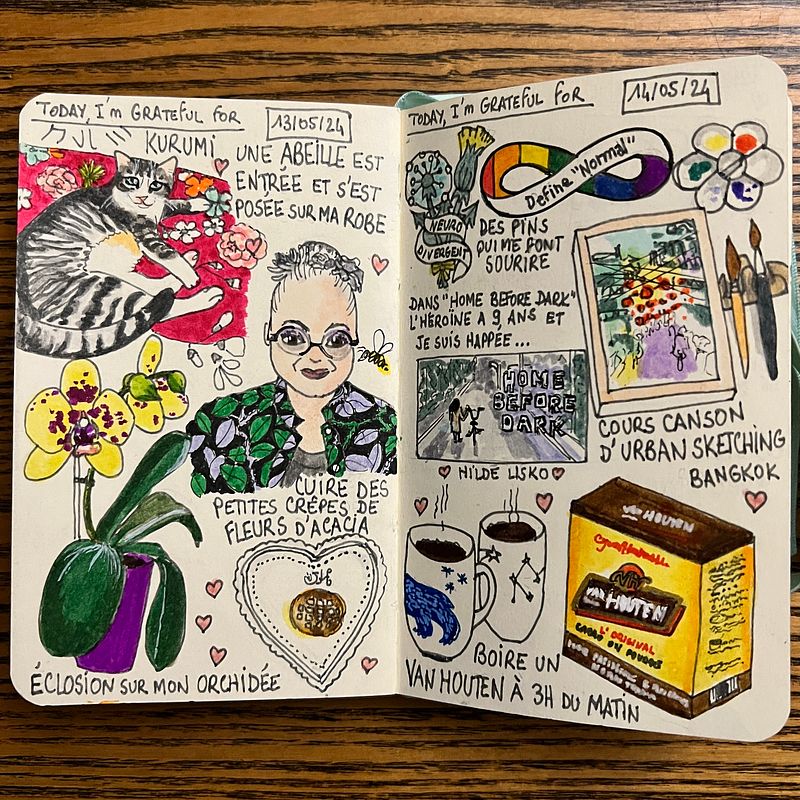 TODAY, I'm GRATEFUL FOR
13/05/24
クルミ KURUMI
UNE ABEILLE EST
ENTRÉE ET S'EST
POSÉE SUR MA ROBE
CUIRE DES
PETITES CRÊPES DE
FLEURS D'ACACIA
ÉCLOSION SUR MON ORCHIDÉE
TODAY, I'm GRATEFUL FOR
14/05/24
NEURO
DIVERGENT
Define "Normal"
DES PINS
QUI ME FONT
SOURIRE
DANS "HOME BEFORE DARK"
L'HÉROÏNE A 9 ANS ET
JE SUIS HAPPÉE...
HOME
BEFORE
DARK
HILDE LISKO
COURS CANSON
D'URBAN SKETCHING
BANGKOK
VAN HOUTEN
VH
VAN HOUTEN
L'ORIGINAL
CACAO EN POUDRE
BOIRE UN
VAN HOUTEN À 3H DU MATIN